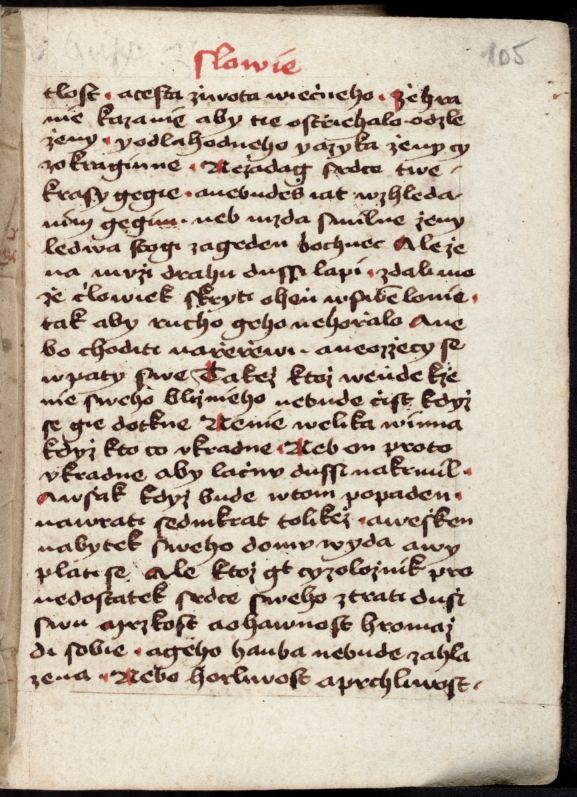 105
slowie
tlost · acesta ziwota wiećneho · že hra
nie kazanie aby tie ostriehalo odzle
ženy · yodlahodneho yazyka ženy cy
zokraginne · Nežadag srdce twe
krasy gegie · anebudeš iat wzhleda
nim gegim · neb mzda smilne ženy
ledwa stogi zageden bochnec Ale že
na muži drahu dussi lapi · zdali mo
že člowiek skryti oheň wswe lonie ·
tak aby rucho geho nehořalo Ane
bo choditi nařeřewi · aneozzecy se
wpaty swe Takež ktož wende kže
nie sweho bližnieho nebude čist když
se gie dotkne Nenie welika winna
když kto co vkradne · Neb on proto
vkradne aby lačnu dussi nakrmil ·
Awšak když bude wtom popaden ·
nawrati sedmkrat tolikež · awešken
nabytek sweho domu wyda awy
platise Ale ktož gt cyzoložnik pro
nedostatek srdce sweho ztrati dusi
swu mrzkost aohawnost hromaž
di sobie · ageho hanba nebude zahla
zena · Nebo horliwost aprchliwost ·